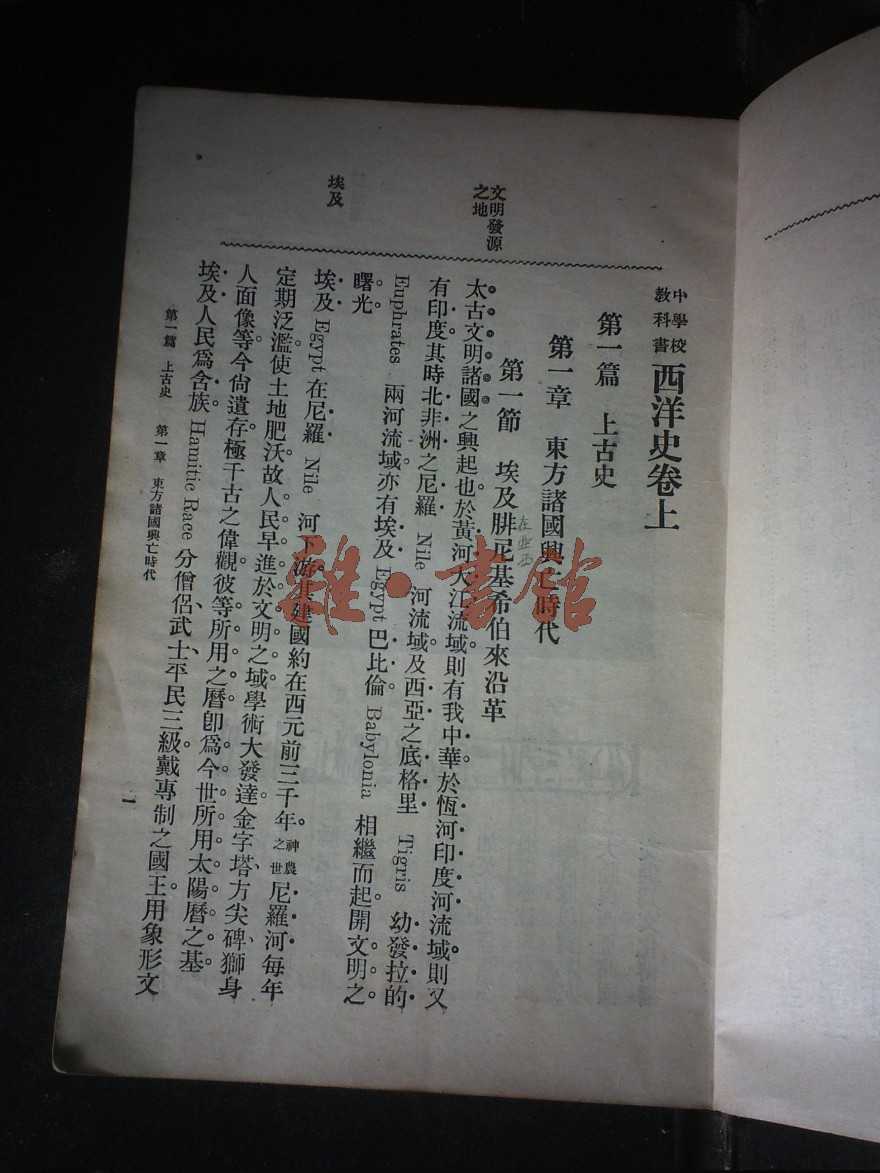 中學校
教科書
西洋史卷上
第一篇　上古史
第一章　東方諸國興亡時代
第一節　埃及腓尼基希伯來沿革
在亜西
文明發源
之地
太古文明諸國之興起也於黃河大江流域則有我中華於恆河印度河流域則又
有印度其時北非洲之尼羅 Nile 河流域及西亞之底格里 Tigris 幼發拉的
Euphrates 兩河流域亦有埃及 Egypt 巴比倫 Babylonia 相繼而起開文明之
曙光
埃及
埃及 Egypt 在尼羅 Nile 河下游其建國約在西元前三千年神農之世尼羅河每年
定期泛濫使土地肥沃故人民早進於文明之域學術大發達金字塔、方尖碑、獅身
人面像等今尙遺存極千古之偉觀彼等所用之曆卽爲今世所用太陽曆之基
埃及人民爲含族 Hamitic Race 分僧侶、武士、平民三級戴專制之國王用象形文
第一篇　上古史　第一章　東方諸國興亡時代
一
雜·書館